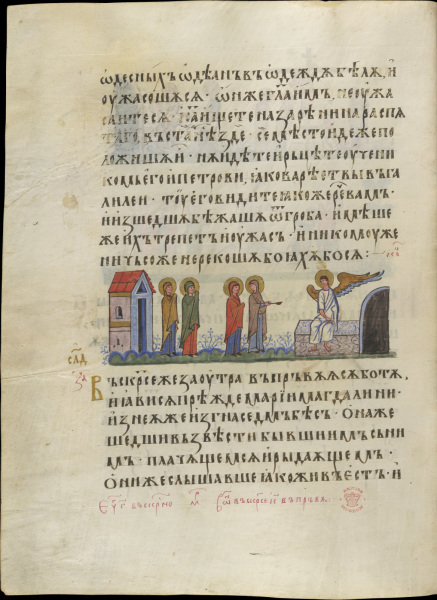 ѡдесныхъ ѡдѣанъ въ ѡдеждѫ бѣлѫ, и
оужасошѧсѧ · ѡнже гл҃а имъ, не оужа
саитесѧ · іс҃а ищете назарѣнина распѧ
таго, въста нѣ зде · се мѣсто идеже по
ложишѧ и · нѫ идѣте и рьцѣте оучени
комь его и петрови, ꙗко варѣетъ вы въ га
лилеи · тоу его видите ꙗкоже рече вамъ ·
и изшедшѧ бѣжашѧ ѿ гроба · имѣше
же ихъ трепетъ и оужасъ · и никомоуже
ничьсоже не рекошѧ боꙗхѫ бо сѧ :
Въскрьсеже заоутра въ прьвѫѧ сѫботѫ,
и ꙗвисѧ прѣжде марии магдалини ·
из неѧже изгна седмь бѣсъ · ѡнаже
шедши възвѣсти бывшиимъ съ ни
мъ · плачѫщемсѧ и рыдаѫщемъ ·
ѡниже слышавше ꙗко живъ естъ · и